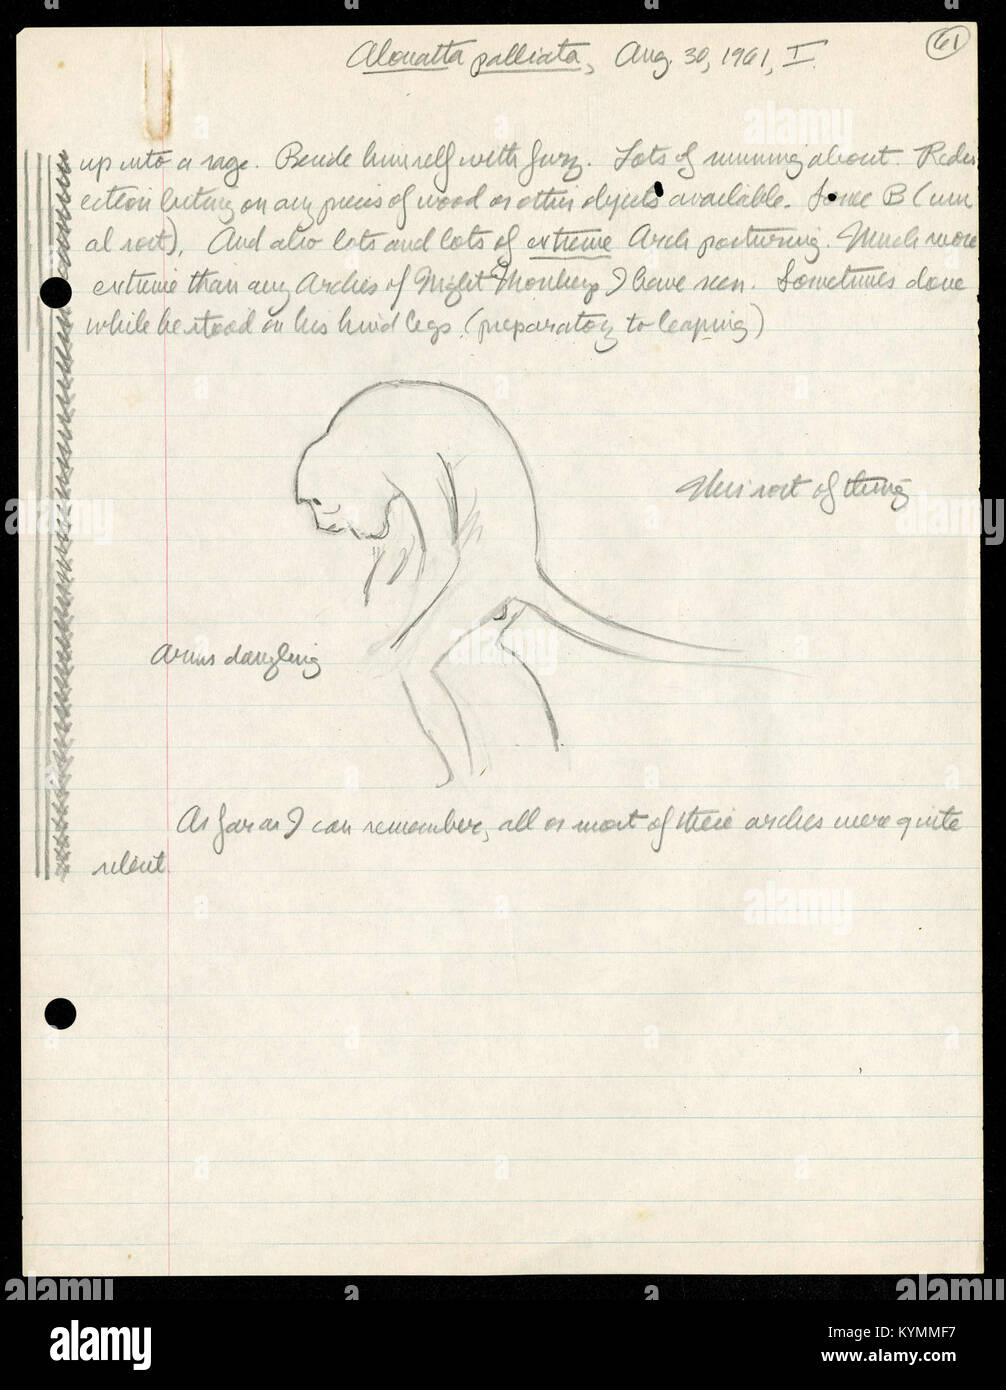 Alouatta palliata, Aug. 30, 1961, I.
61
up into a rage. Beside himself with fury. Lots of running about. Redir
ection biting on any pieces of wood or other objects available. Some B (usu
al sort). And also lots and lots of extreme Arch posturing. Much more
extreme than any Arches of Night Monkeys I have seen. Sometimes done
while he stood on his hind legs (preparatory to leaping)
This sort of thing
Arms dangling
As far as I can remember, all or most of these arches were quite
silent.
alamy
alamy
alamy
alamy
alamy
alamy
alamy
alamy
alamy
Image ID: KYMMF7
www.alamy.com